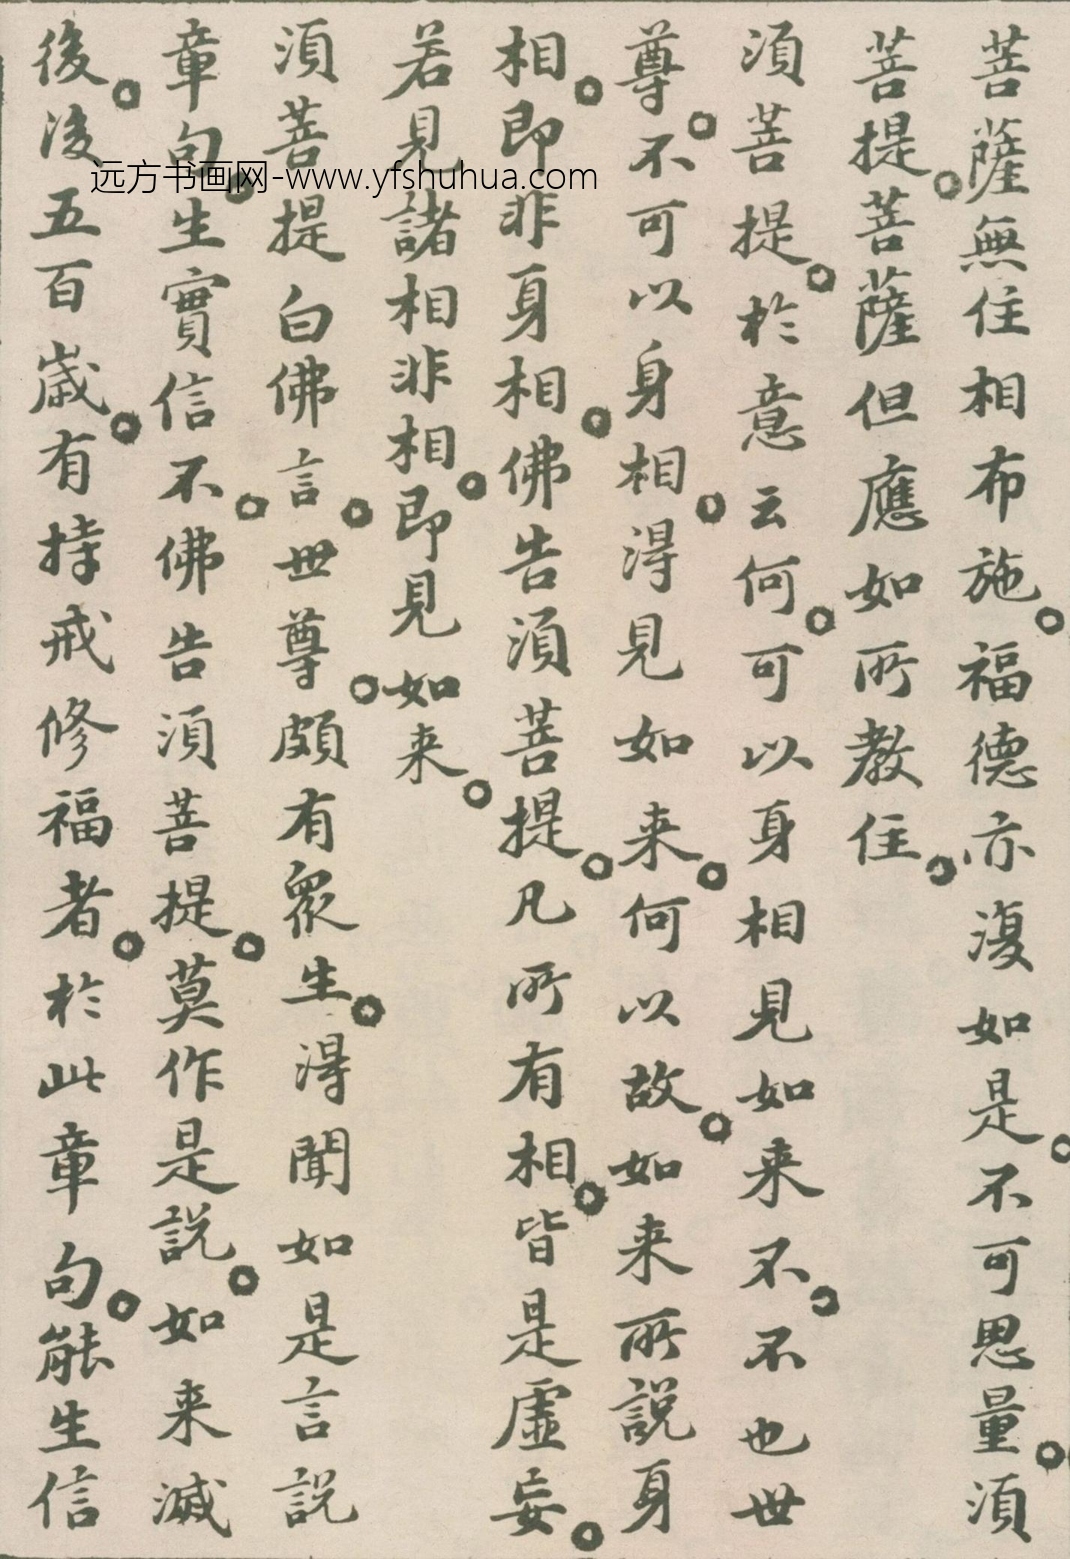 菩薩無住相布施。福德亦復如是。不可思量。須
菩提。菩薩但應如所教住。
須菩提。於意云何。可以身相見如来不。不也世
尊。不可以身相。得見如来。何以故。如来所說身
相。即非身相。佛告須菩提。凡所有相。皆是虛妄。
若見諸相非相。即見如来。
須菩提白佛言。世尊。頗有衆生。得聞如是言説
章句。生實信不。佛告須菩提。莫作是説。如来滅
後。後五百歲。有持戒修福者。於此章句。能生信
远方书画网-www.yfshuhua.com